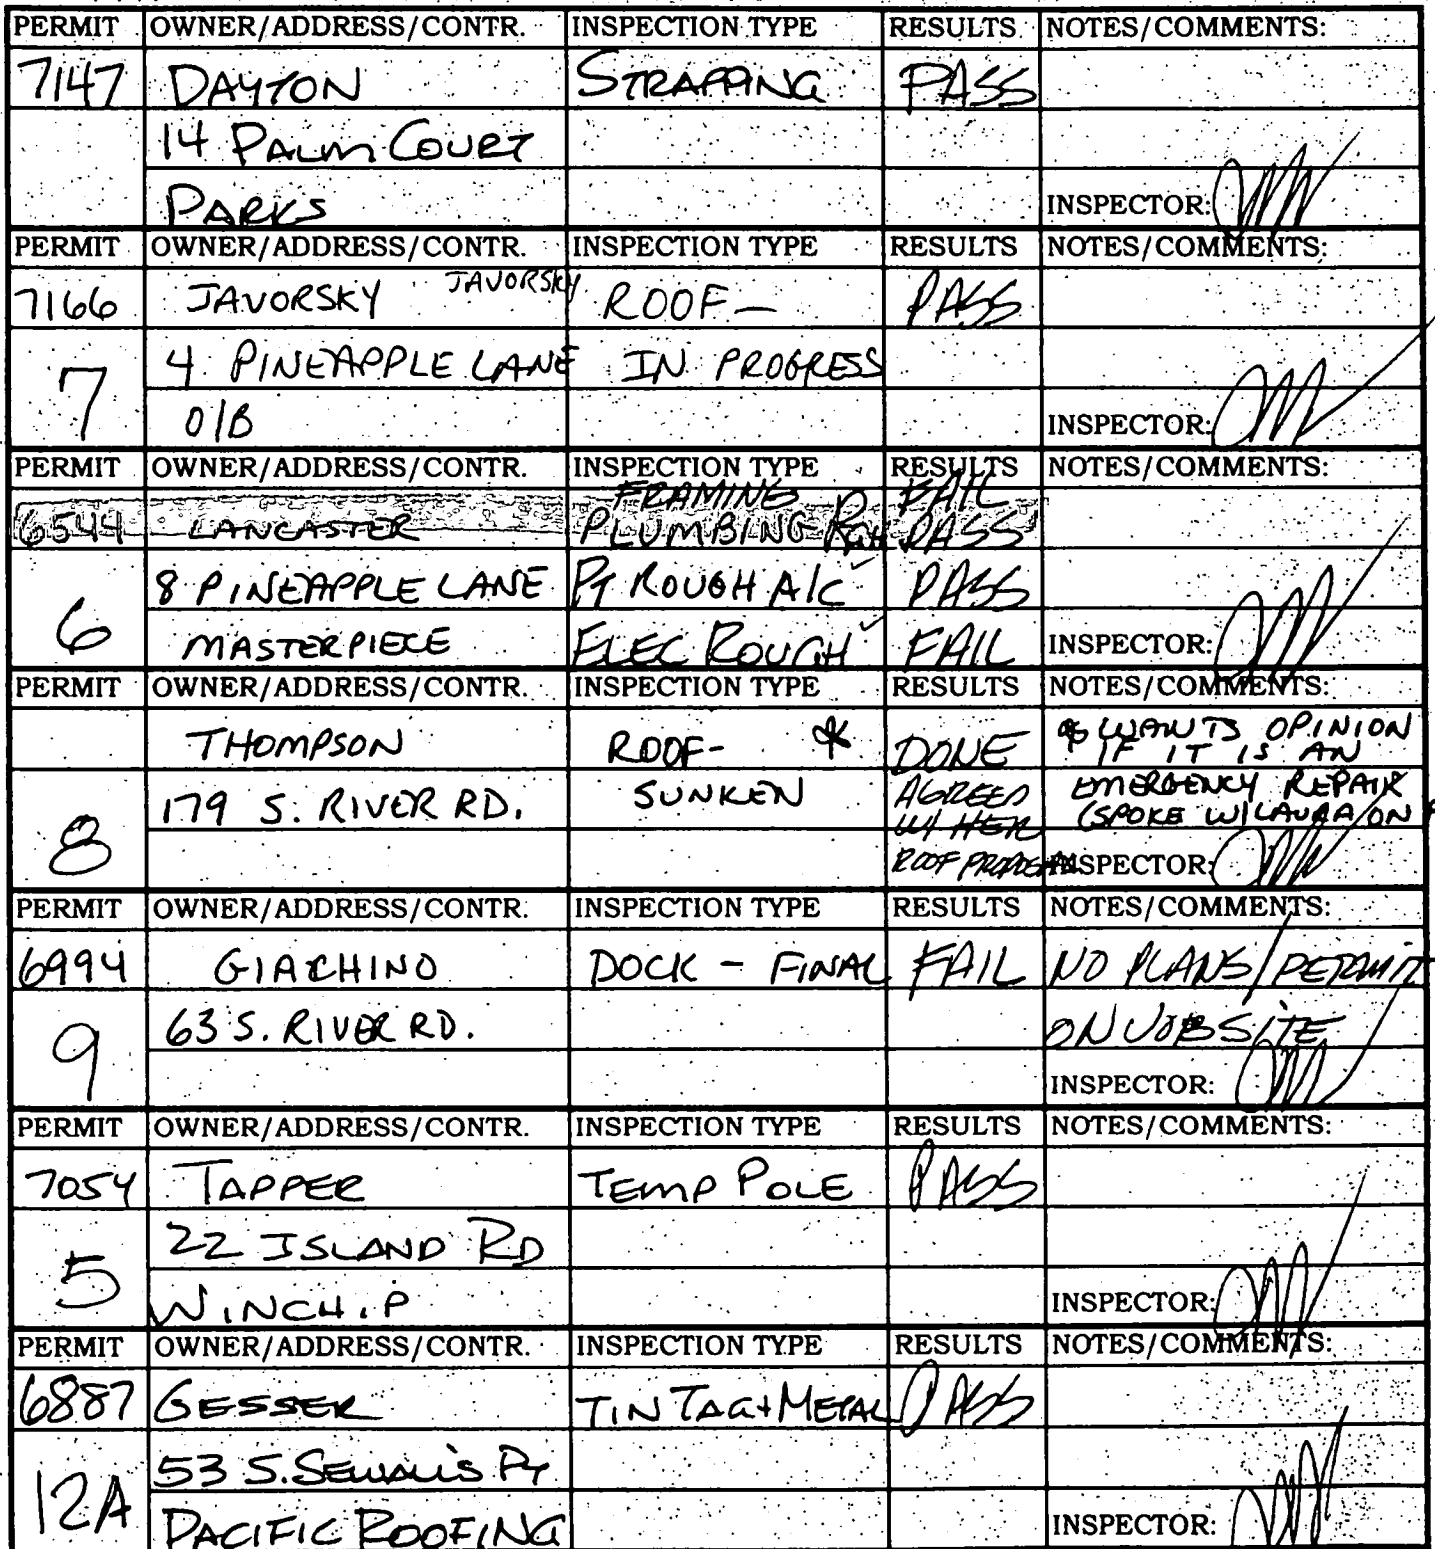 PERMIT OWNER/ADDRESS/CONTR. INSPECTION TYPE RESULTS NOTES/COMMENTS:
7147 DAYTON STRAPPING PASS
14 PALM COURT
PARKS INSPECTOR:
PERMIT OWNER/ADDRESS/CONTR. INSPECTION TYPE RESULTS NOTES/COMMENTS:
7166 JAVORSKY JAVORSKY ROOF- PASS
7 4 PINEAPPLE LANE IN PROGRESS
O/B INSPECTOR:
PERMIT OWNER/ADDRESS/CONTR. INSPECTION TYPE RESULTS NOTES/COMMENTS:
FRAMING FAIL
6544 LANCASTER PLUMBING RGH PASS
6 8 PINEAPPLE LANE PT ROUGH A/C PASS
MASTERPIECE ELEC ROUGH FAIL INSPECTOR:
PERMIT OWNER/ADDRESS/CONTR. INSPECTION TYPE RESULTS NOTES/COMMENTS:
THOMPSON ROOF- * DONE * WANTS OPINION
IF IT IS AN
8 179 S. RIVER RD. SUNKEN AGREED EMERGENCY REPAIR
W/ HER (SPOKE W/LAURA ON
ROOF INSPECTOR:
PERMIT OWNER/ADDRESS/CONTR. INSPECTION TYPE RESULTS NOTES/COMMENTS:
6994 GIACHINO DOCK - FINAL FAIL NO PLANS/PERMIT
9 63 S. RIVER RD. ON JOBSITE
INSPECTOR:
PERMIT OWNER/ADDRESS/CONTR. INSPECTION TYPE RESULTS NOTES/COMMENTS:
7054 TAPPER TEMP POLE PASS
5 22 ISLAND RD
WINCHIP INSPECTOR:
PERMIT OWNER/ADDRESS/CONTR. INSPECTION TYPE RESULTS NOTES/COMMENTS:
6887 GESSER TIN TAG+METAL PASS
12A 53 S. SEWALL'S PT
PACIFIC ROOFING INSPECTOR: